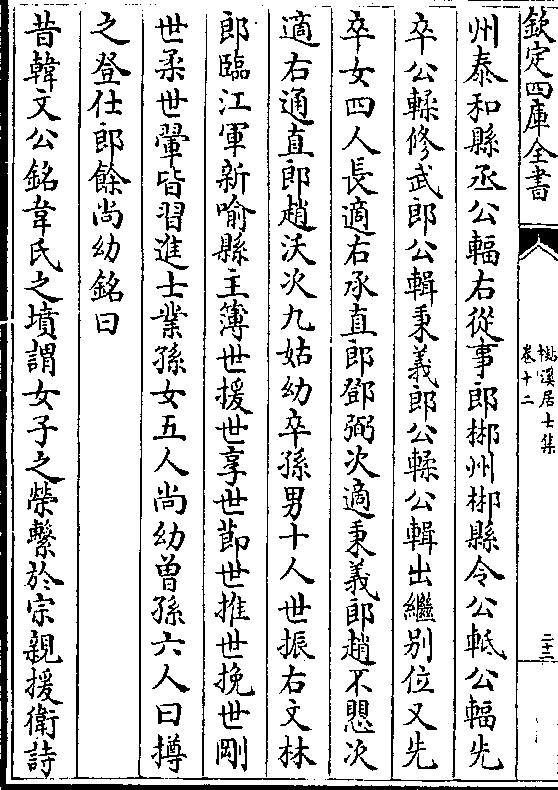 欽定四庫全書
楓溪居士集
卷十二
二十三
州泰和縣丞公輻右從事郎郴州郴縣令公軧公輻先
卒公轑修武郎公輯秉義郎公轑公輯出繼别位又先
卒女四人長適右承直郎鄧弼次適秉義郎趙不愳次
適右通直郎趙沃次九姑幼卒孫男十人世振右文林
郎臨江軍新喻縣主簿世援世享世節世推世挽世剛
世柔世翬皆習進士業孫女五人尚幼曾孫六人曰摶
之登仕郎餘尚幼銘曰
昔韓文公銘韋氏之墳謂女子之榮繫於宗親援衛詩